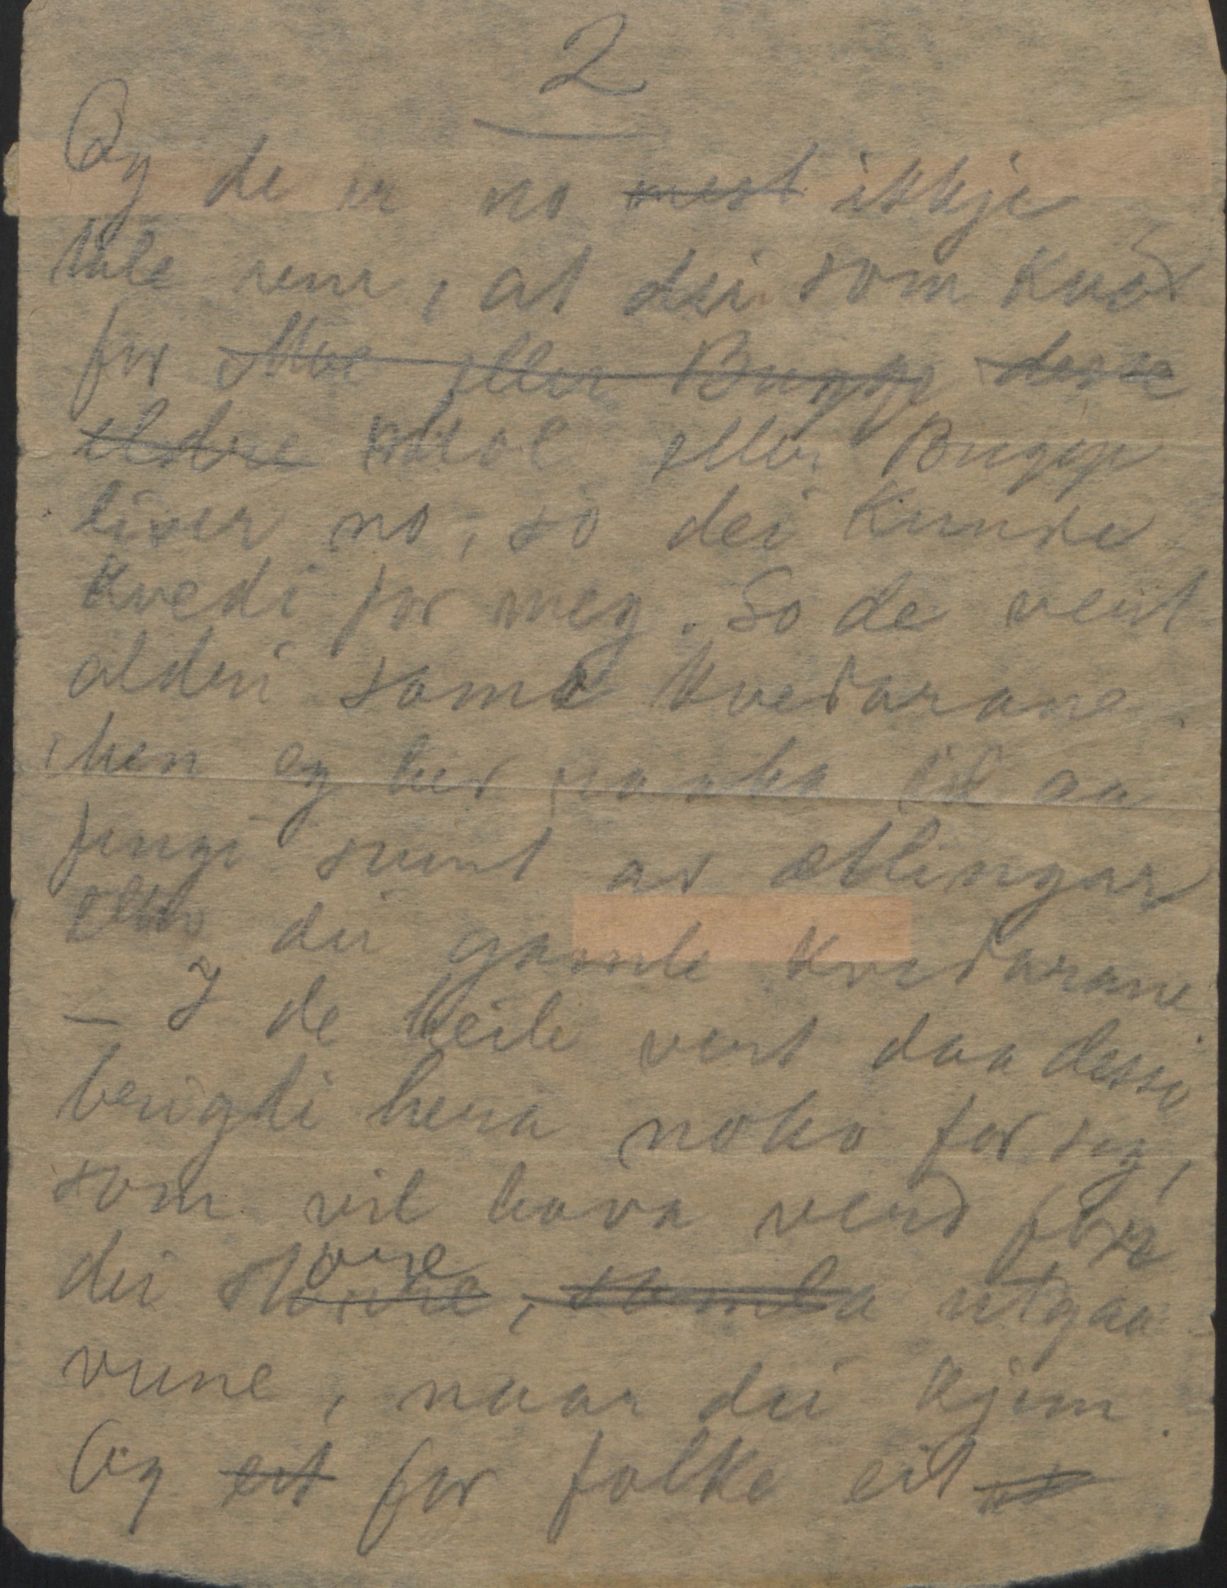 2
Og de er no ~~mest~~ ikkje
tale um, at dei som kvad
for ~~Moe eller Bugge~~ ~~desse~~
~~eldre~~ Moe eller Bugge
liver no, so dei kunde
kvedi for meg. So de vert
aldri same kvedarane.
Men eg her
fengi sumt av ætlingar
etter dei gamle kvedarane.
– I de heile vert daa desse
bergdi hera noko for seg,
som vil hava verd fyre
dei store, utgaa-
vune, naar dei kjem.
Og ~~eit~~ for folke eit